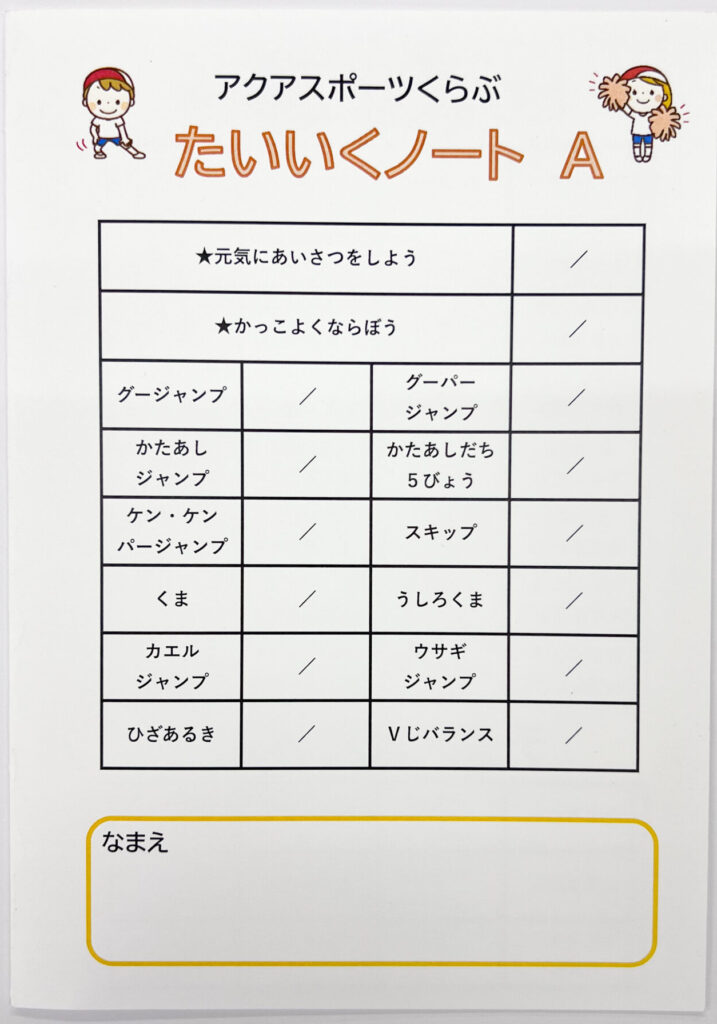 アクアスポーツくらぶ
たいいくノート A
★元気にあいさつをしよう ／
★かっこよくならぼう ／
グージャンプ ／ グーパー
ジャンプ ／
かたあし
ジャンプ ／ かたあしだち
５びょう ／
ケン・ケン
パージャンプ ／ スキップ ／
くま ／ うしろくま ／
カエル
ジャンプ ／ ウサギ
ジャンプ ／
ひざあるき ／ Ｖじバランス ／
なまえ